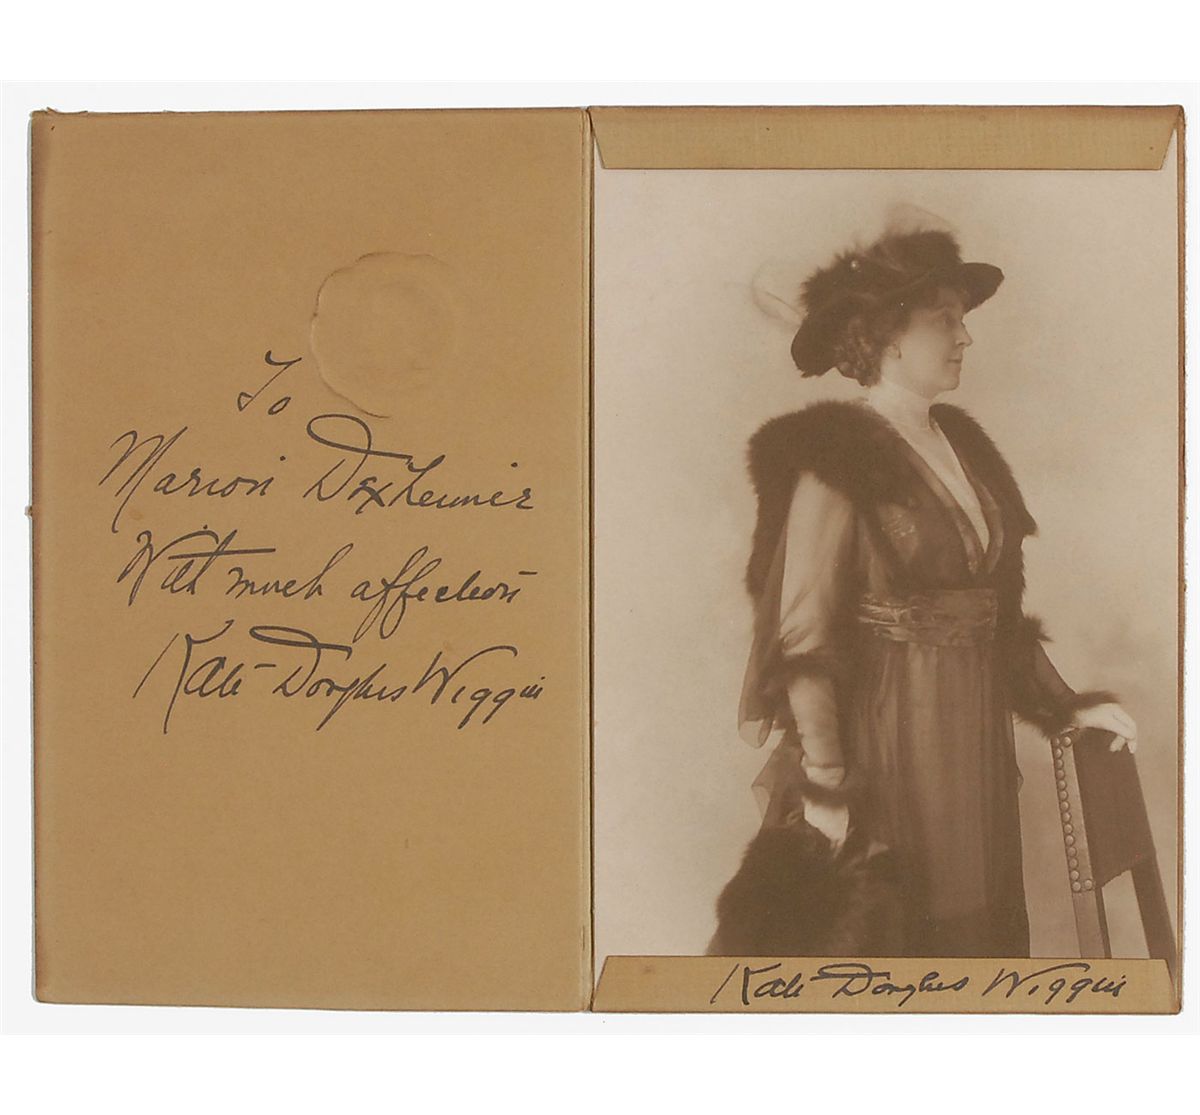 To
Marion Dexheimer
With much affection
Kate Douglas Wiggin
Kate Douglas Wiggin